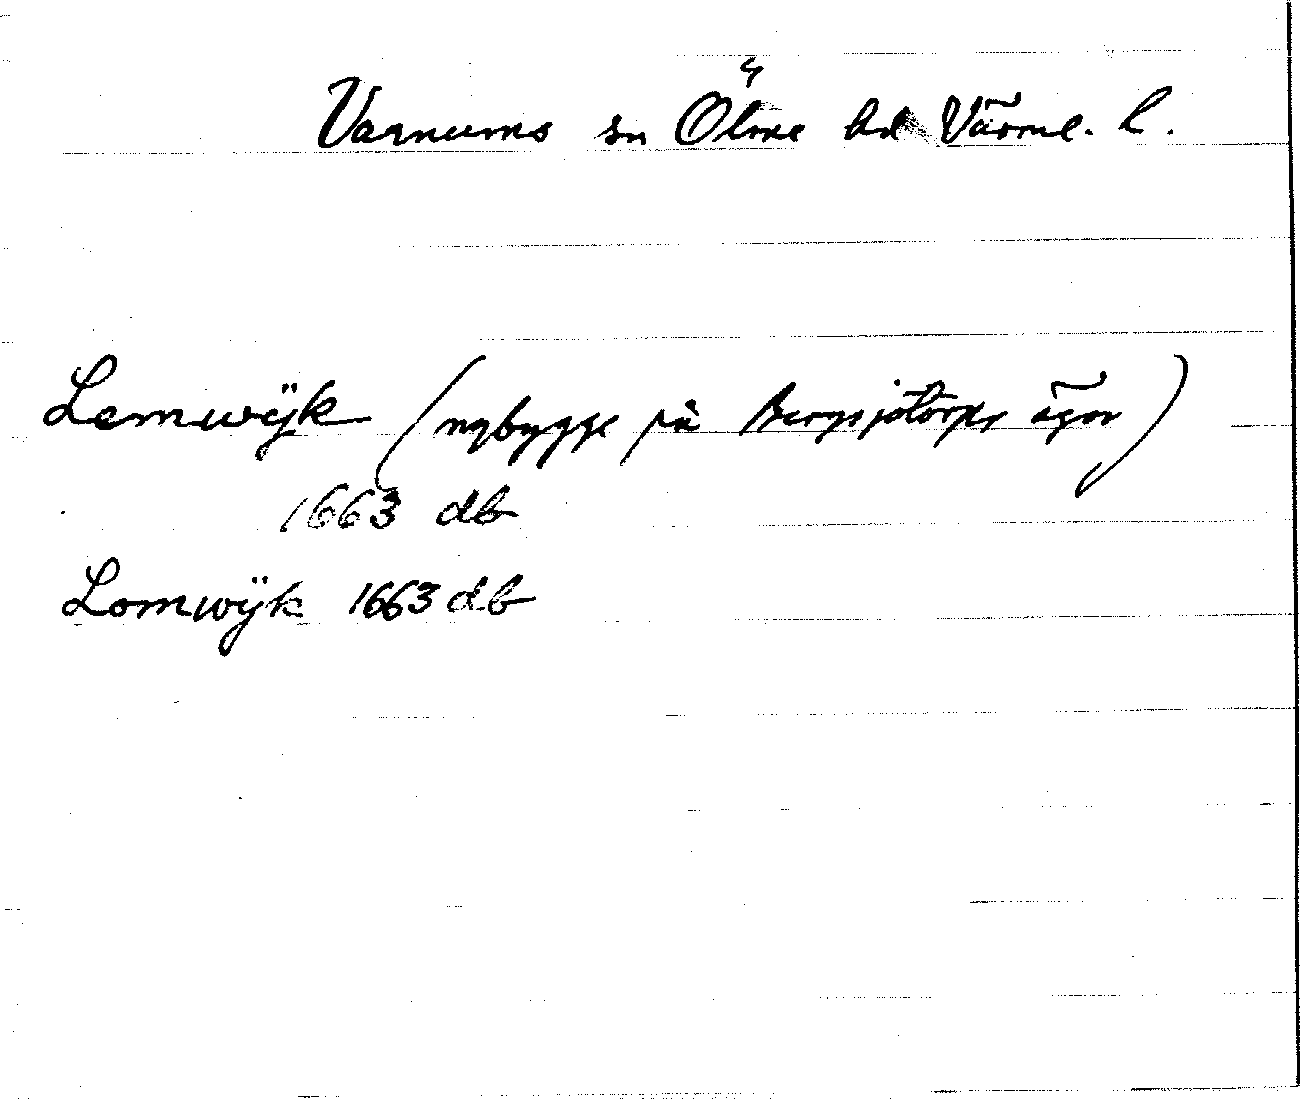 Varnums sn Ölme hd Värml. l.
Lemwÿk (nybygge på Bergsjötorps ägor)
1663 db
Lomwÿk 1663 db